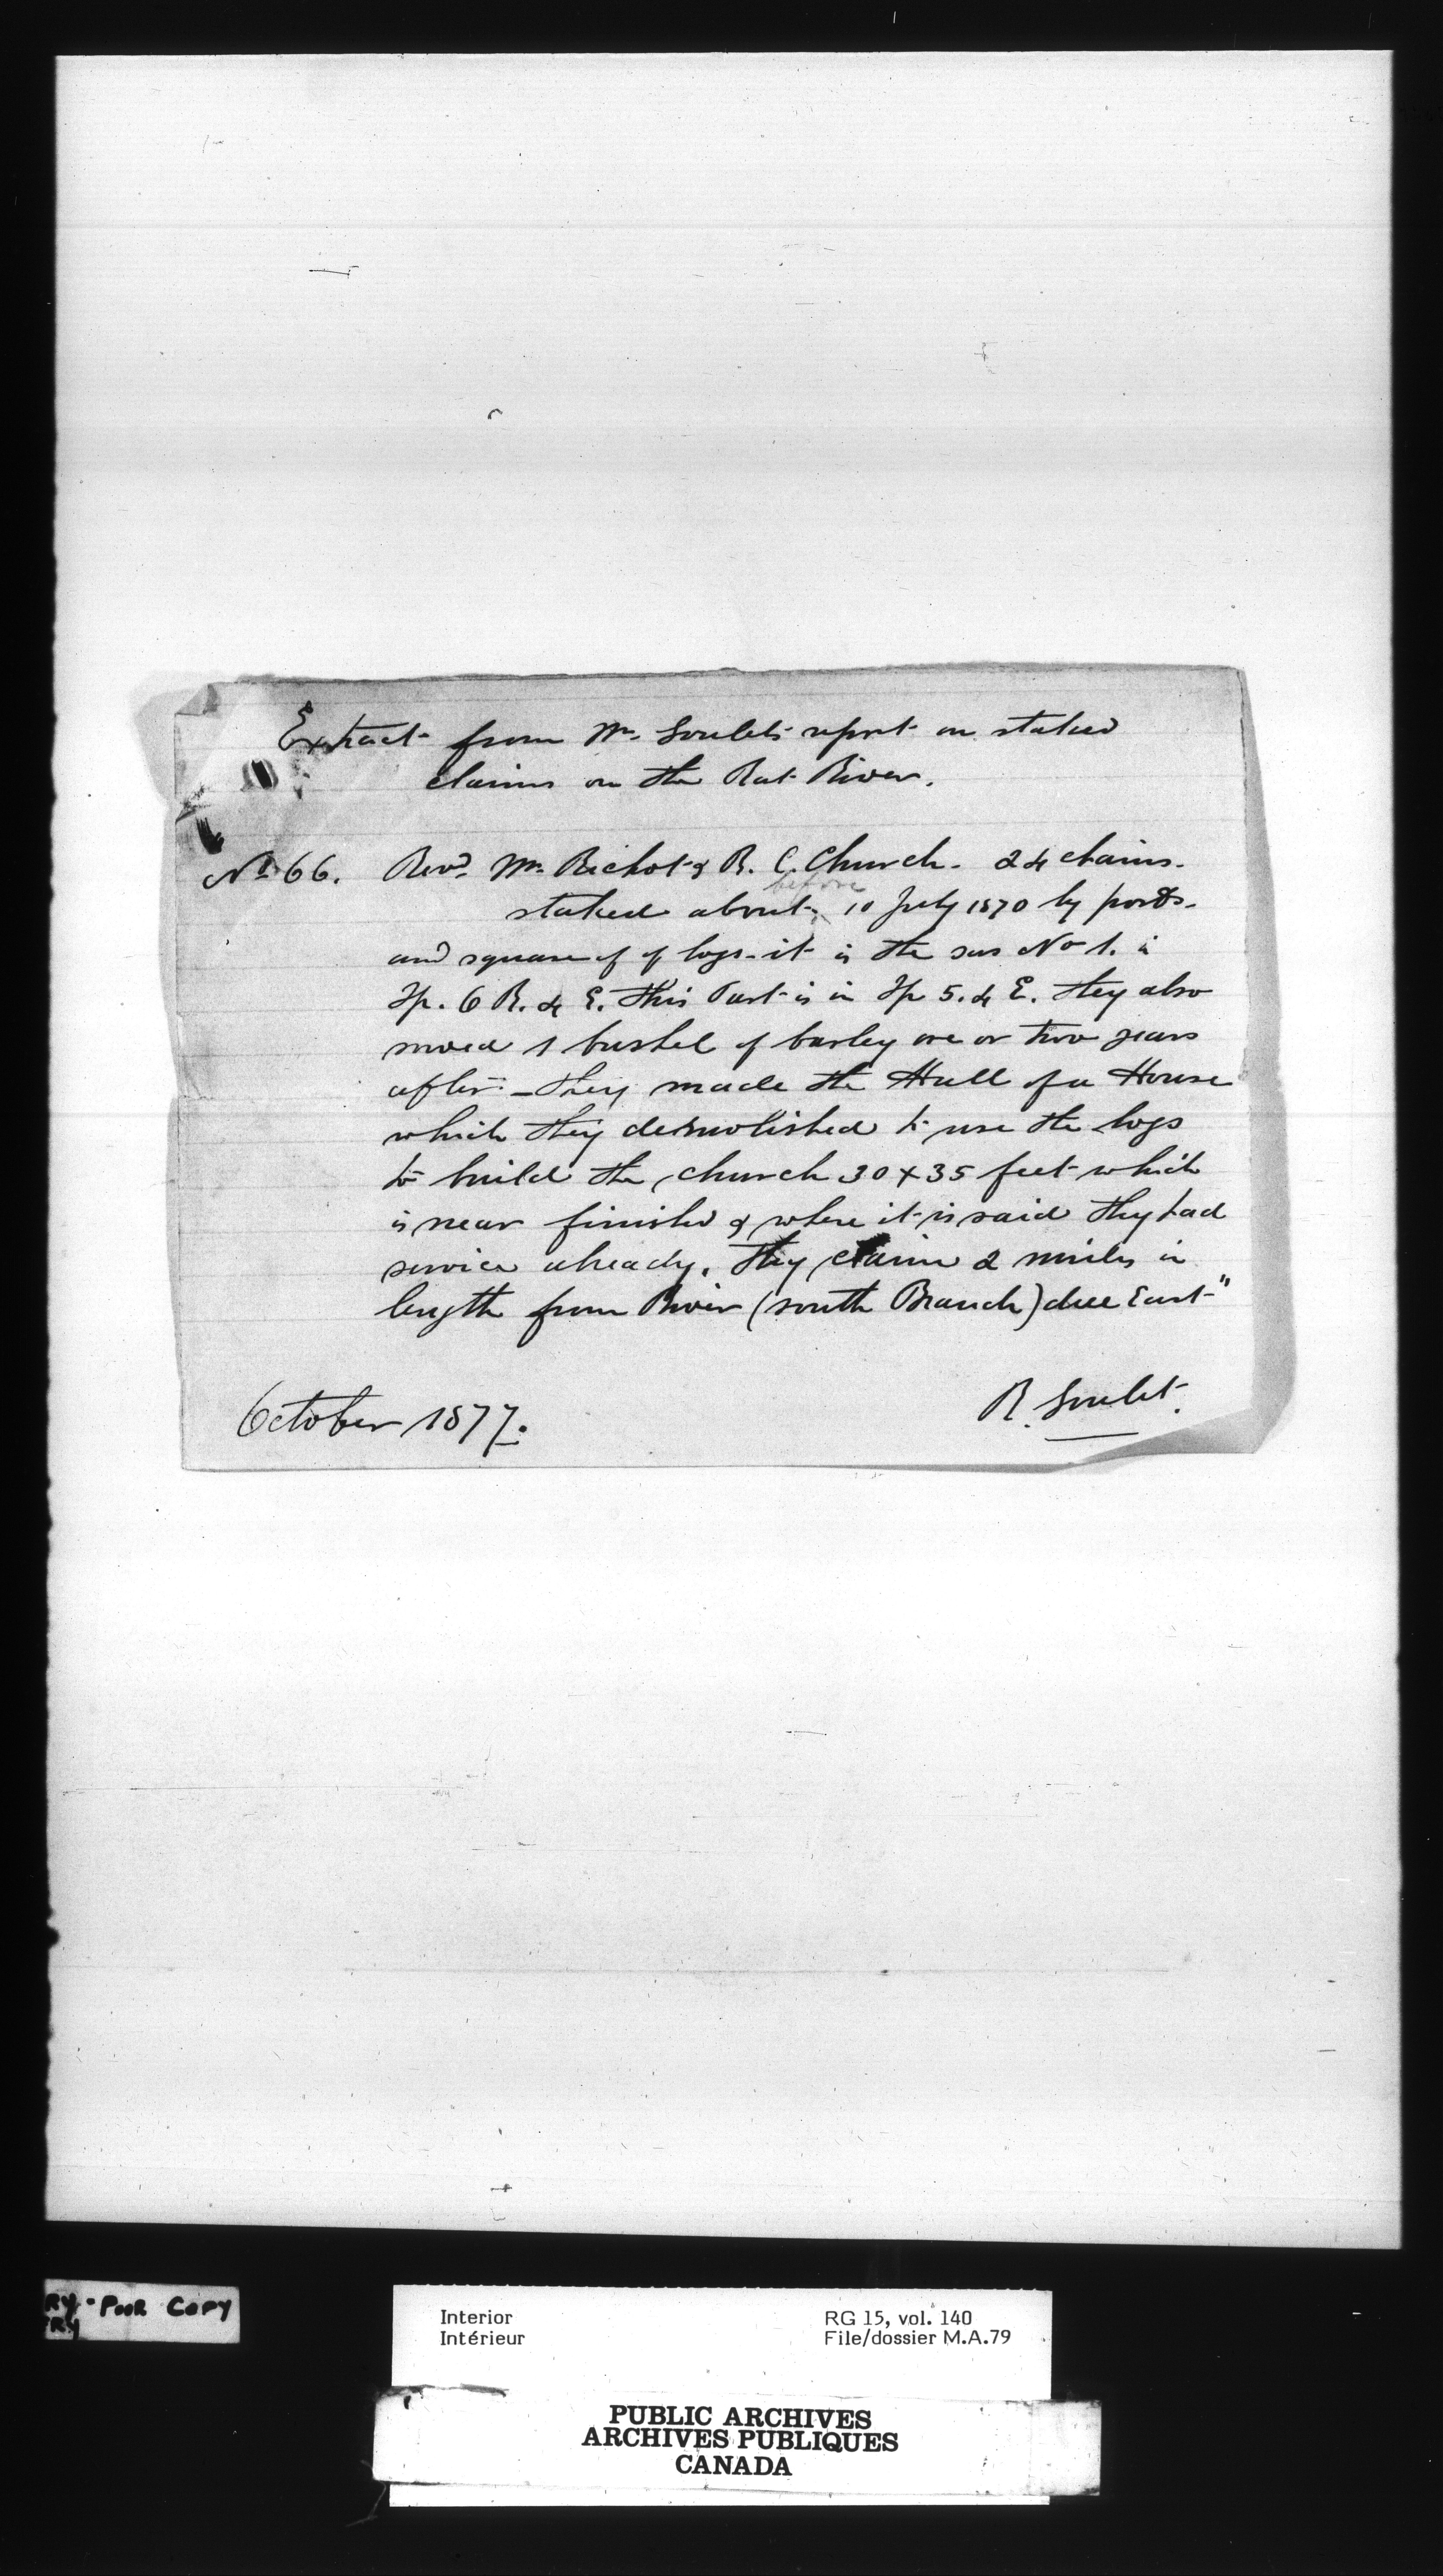 Extract from Mr. Goulet's report on staked
claims on the Rat River.
No 66. Revd. Mr. Richot & R. C. Church. 24 chains.
before
staked about 10 July 1870 by posts.
and square of logs. it is the No 1. in
Tp. 6 R. 4 E. This Part is in Tp 5. 4 E. they also
sowed 1 bushel of barley one or two years
after. - they made the Hull of a House
which they demolished to use the logs
to build the church 30 x 35 feet which
is near finished & where it is said they had
service already. They claim 2 miles in
length from River (south Branch) due East"
October 1877.
R. Goulet.
RY - POOR COPY
RY
Interior
Intérieur
RG 15, vol. 140
File/dossier M.A.79
PUBLIC ARCHIVES
ARCHIVES PUBLIQUES
CANADA